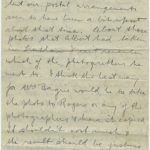 but our postal arrangements
seem to have been a bit upset
about that time. About those
photos that Albert had taken
in
which of the photographers he
went to. I think the best way
for Mrs Bagùe would be to take
the photo to Rogers or any of the
photographers & have it copied
it shouldn't cost much &
the result should be